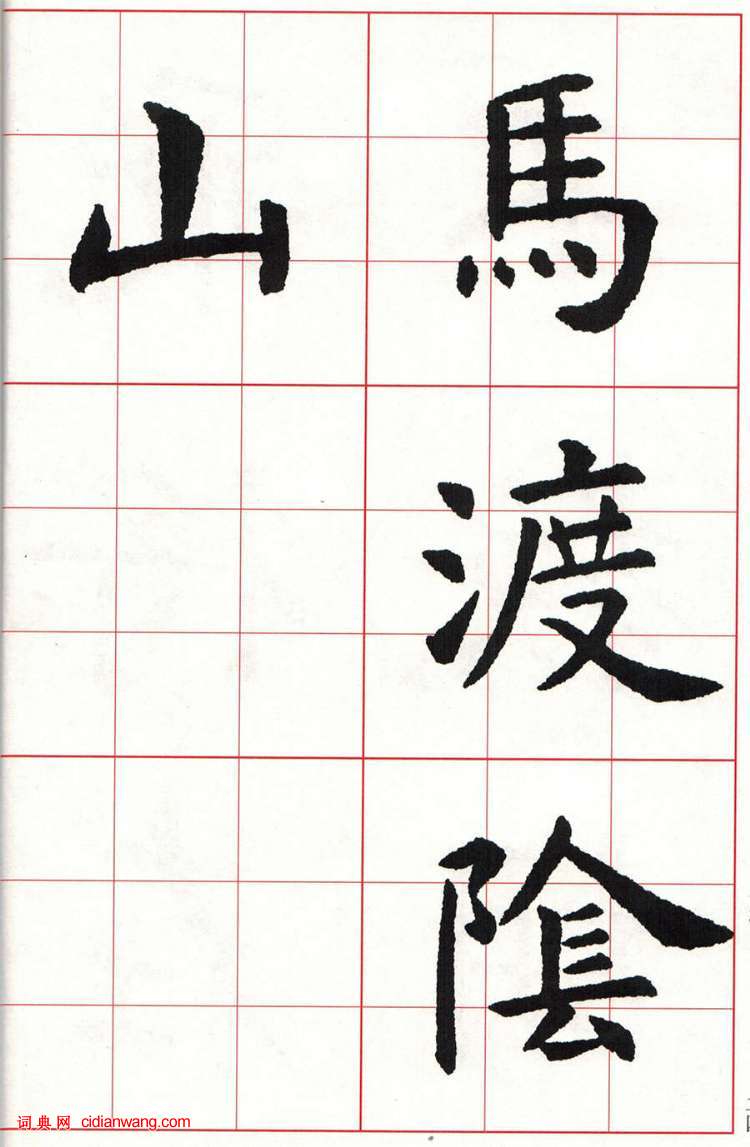 馬渡陰
山
词典网 cidianwang.com